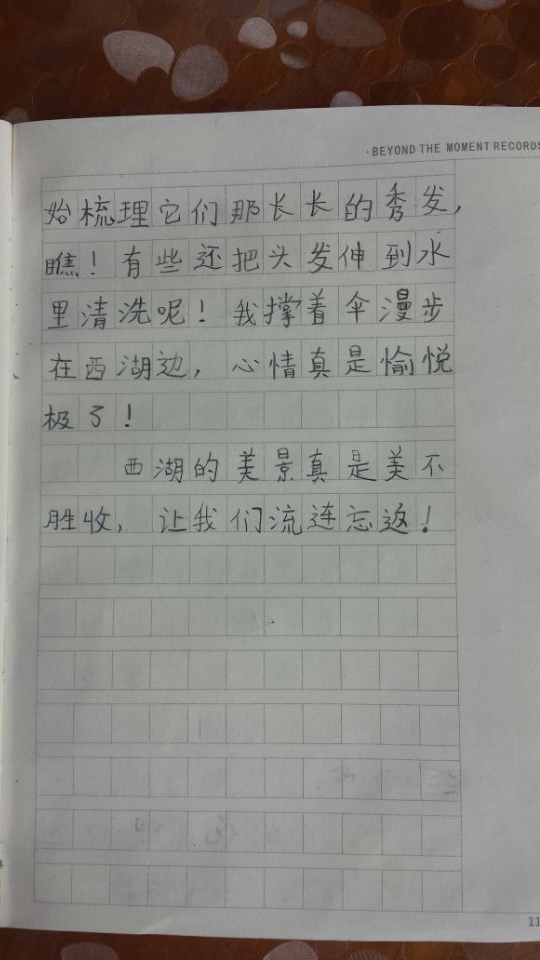 ·BEYOND THE MOMENT RECORDS
始梳理它们那长长的秀发，
瞧！有些还把头发伸到水
里清洗呢！我撑着伞漫步
在西湖边，心情真是愉悦
极了！
西湖的美景真是美不
胜收，让我们流连忘返！
11